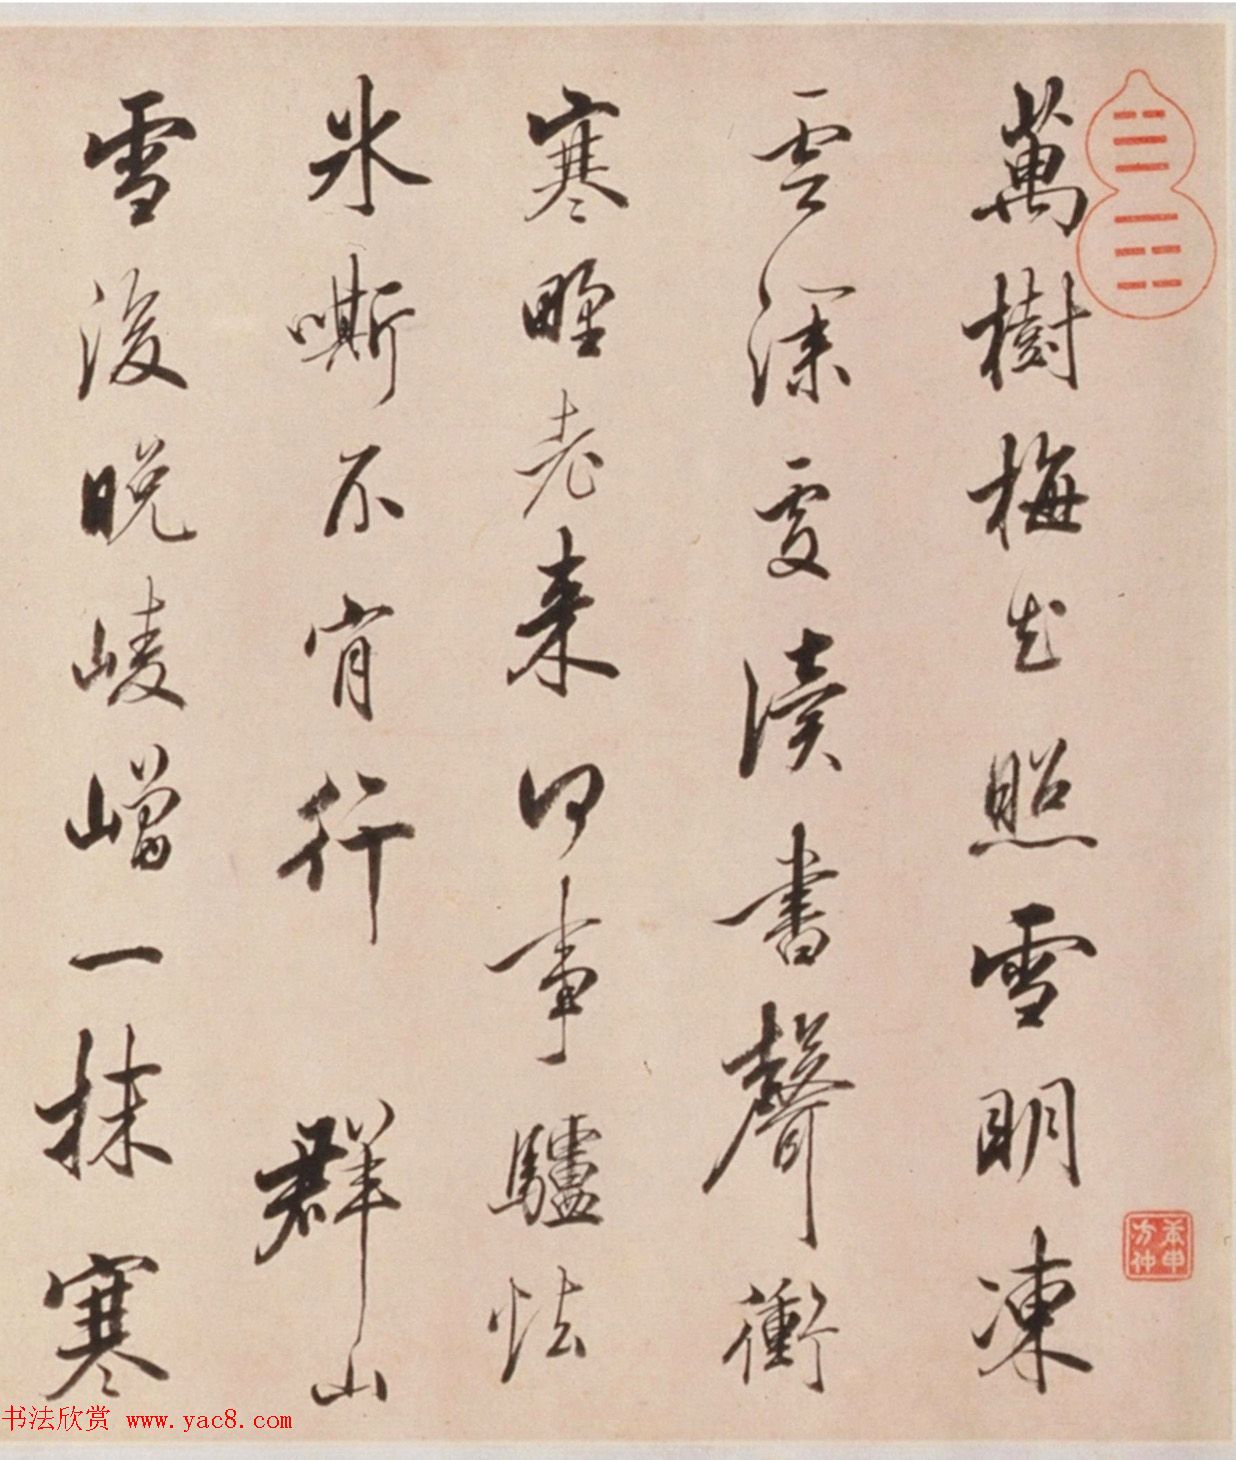 萬樹梅花照雪明凍
雲深處讀書聲衝
寒野老來何事驢怯
冰嘶不肯行 群山
雪後晚崚嶒一抹寒
书法欣赏 www.yac8.com